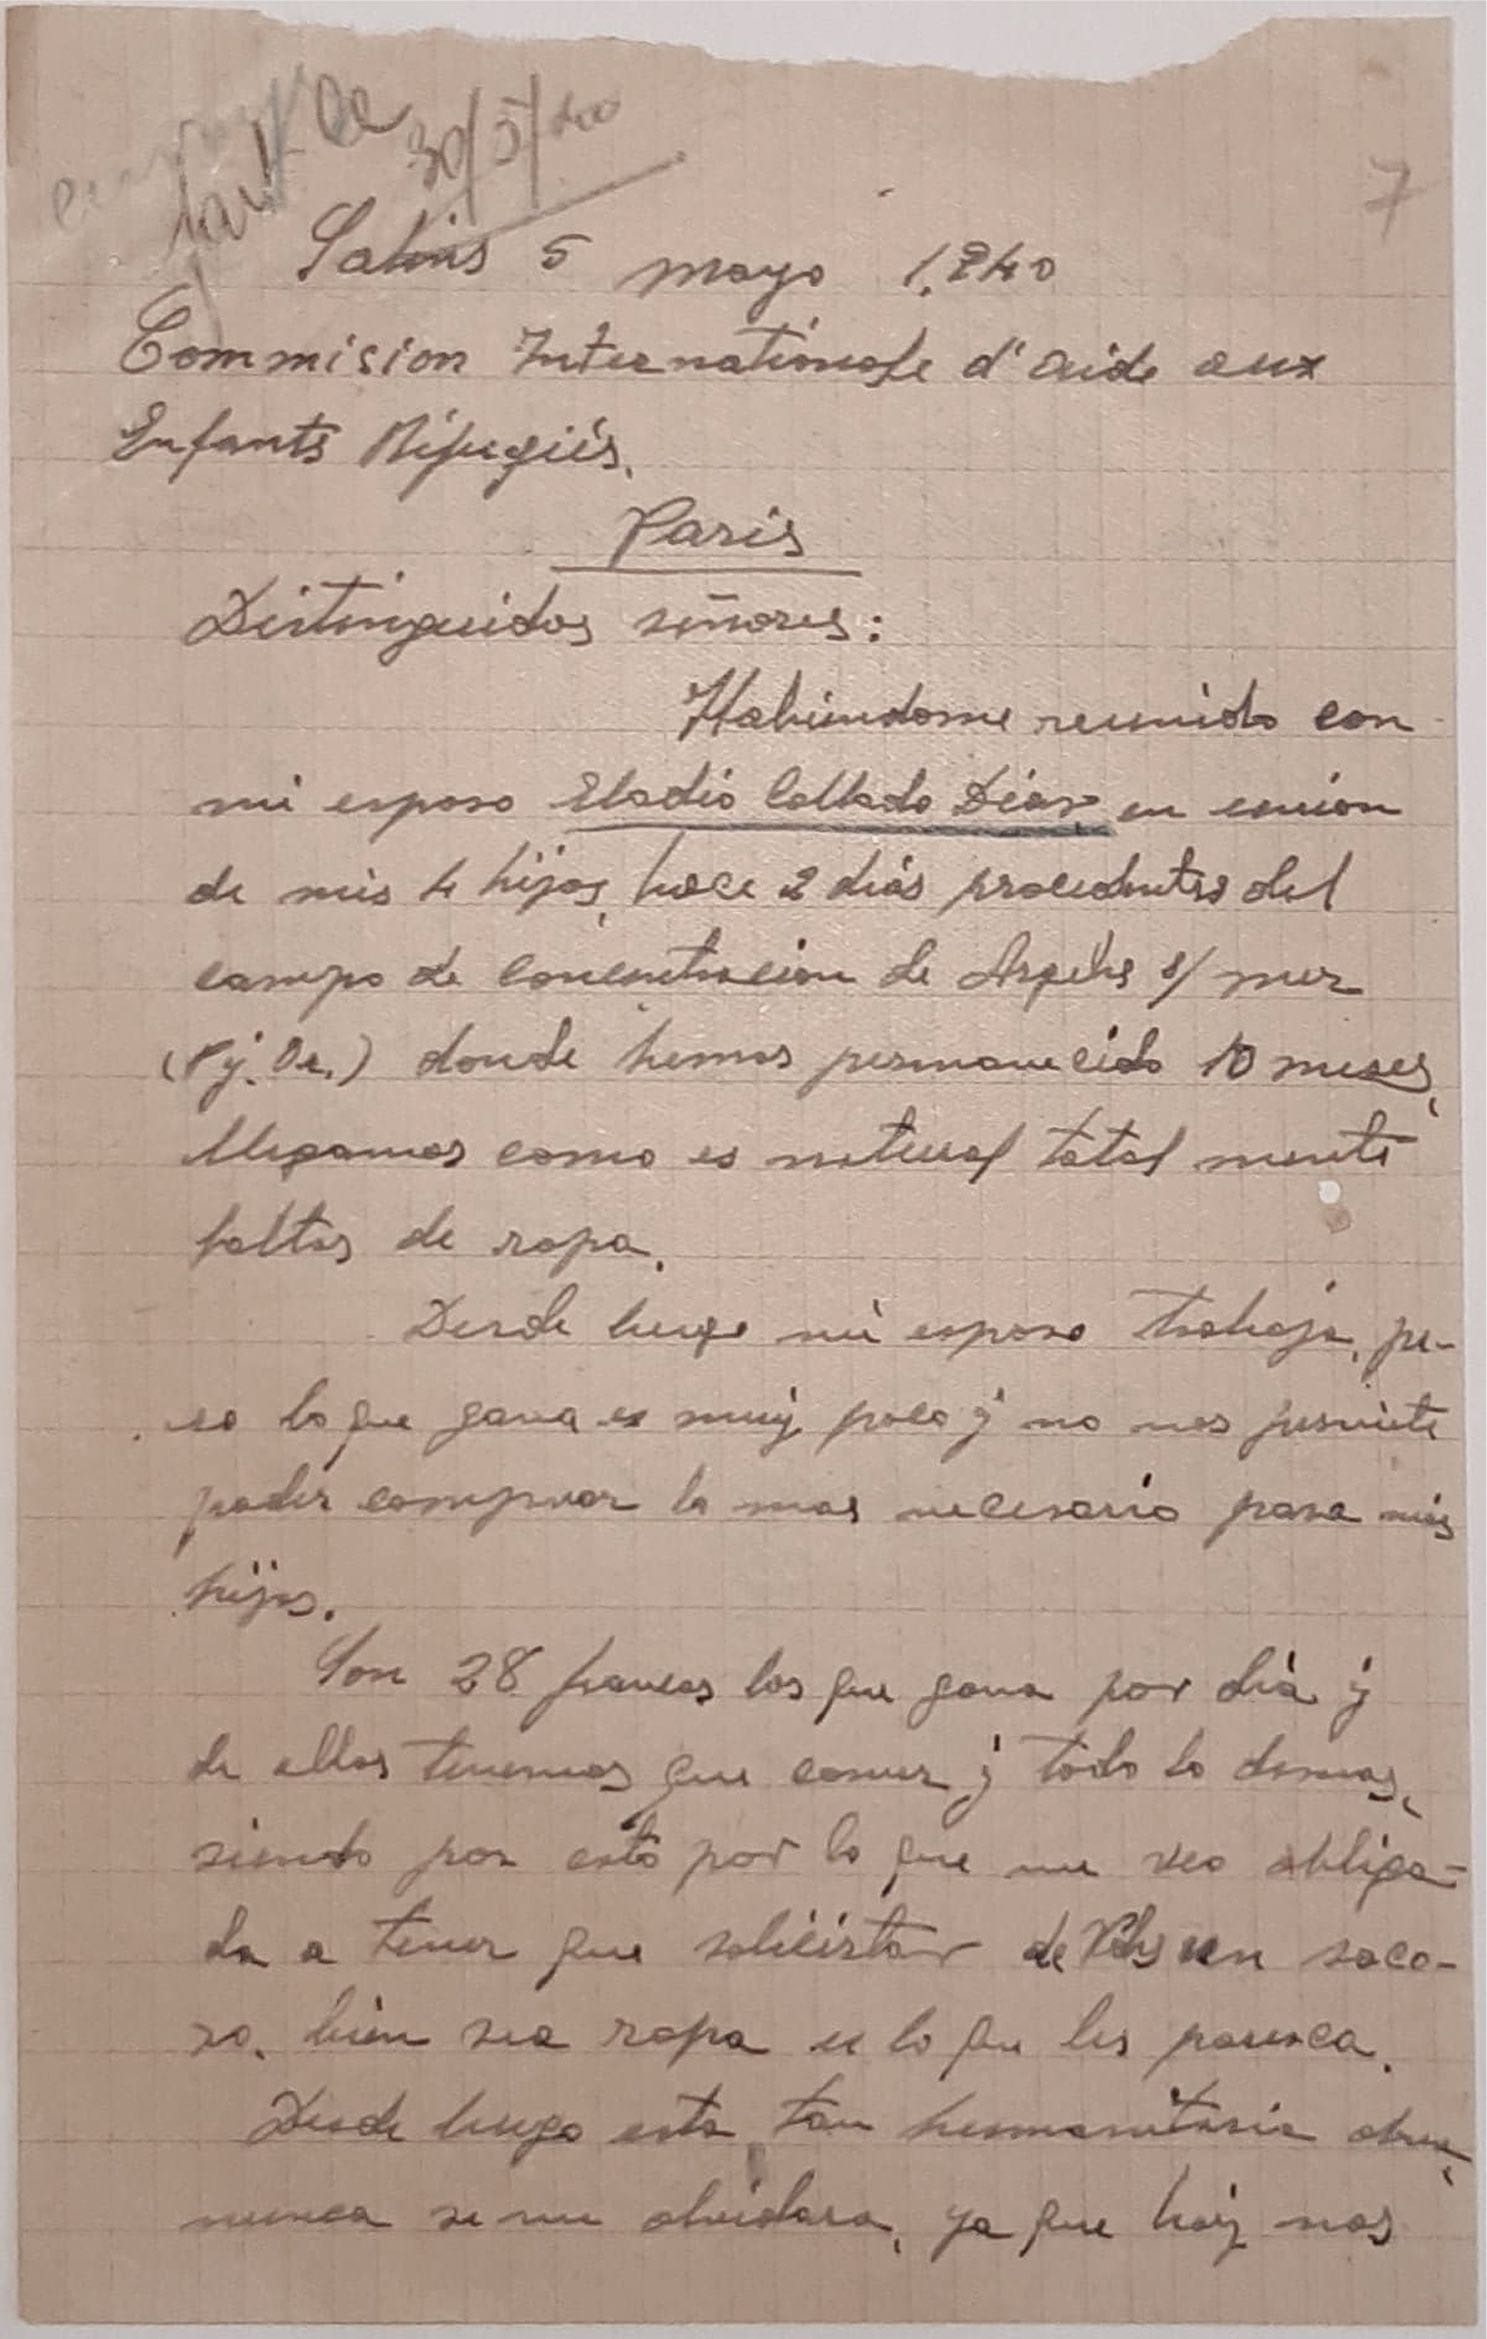 30/5/40
7
Salins 5 mayo 1.940
Commision Internationale d'aide aux
Enfants Réfugiés.
Paris
Distinguidos señores:
Habiendome reunido con
mi esposo Eladio Collado Diaz en union
de mis 4 hijos, hace 2 dias procedentes del
campo de concentracion de Argelés s/ mer
(Py. Or.) donde hemos permanecido 10 meses,
llegamos como es natural total mente
faltos de ropa.
Desde luego mi esposo trabaja, pe-
ro lo que gana es muy poco y no nos permite
poder comprar lo mas necesario para mis
hijos.
Son 28 francos los que gana por dia y
de ellos tenemos que comer y todo lo demas,
siendo por esto por lo que me veo obliga-
da a tener que solicistar de Vds un soco-
ro, bien sea ropa u lo que les paresca.
Desde luego esta tan humanitaria obra,
nunca se me olvidara, ya que hoy nos